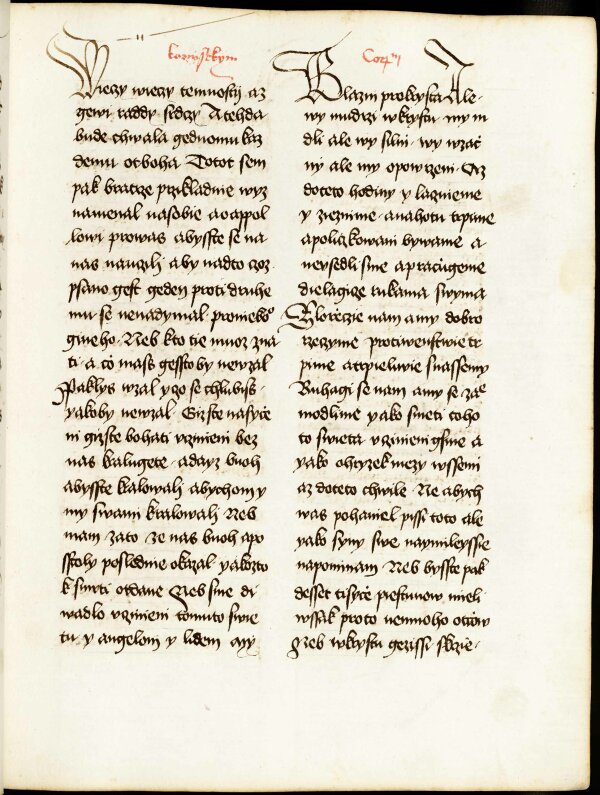 korynſkym
Wieczy wieczy temnoſtij az
gewi raddy ſrdczy A tehda
bude chwala gednomu kaz
demu ot boha Totot ſem
pak bratrzie przikladnie wyz
namenal na ſobie a o appol
lowi pro was abyſſte ſe na
nas nauczili aby nad to czoz
pſano geſt geden proti druhe
mu ſe nenadymal pro nieko⁰
gineho Neb kto tie muoz zna
ti a czo maſs geſſto by newzal
Paklys wzal y czo ſe chlubiſs
yakoby newzal Giz ſte naſyce
ni giz ſte bohati vczinieni bez
nas kralugete a dayz buoh
abyſſte kralowali abychom y
my ſwami kralowali Neb
mam za to ze nas buoh apo
ſſtoly poſlednie okazal yakozto
k ſmrti otdane Neb ſme di
wadlo vczinieni tomuto ſwie
tu y angelom y lidem My
Cor.ij
Blazni pro kryſta Ale
wy mudrzi w kryſtu my m
dli ale wy ſilni wy wzac
ni ale my opowrzeni Az
do teto hodiny y lacznieme
y zieznime a nahotu trpime
a policzkowani bywame a
neyſedli ſme a pracugeme
dielagicze rukama ſwyma
Zlorzeczie nam a my dobro
rzeczyme protiwenſtwie tr
pime a trpieliwie ſnaſſemy
Ruhagi ſe nam a my ſe za⁰
modlime yako ſmeti toho
to ſwieta vczinieni gſme a
yako ohryzek mezy wſſemi
az do teto chwile Ne abych
was pohaniel piſſi toto ale
yako ſyny ſwe naymileyſſie
napominam Neb byſſte pak
deſſet tiſycz pieſtunow mieli
wſſak proto nemnoho otcow
Neb w kryſtu gezziſſi ſkrzie